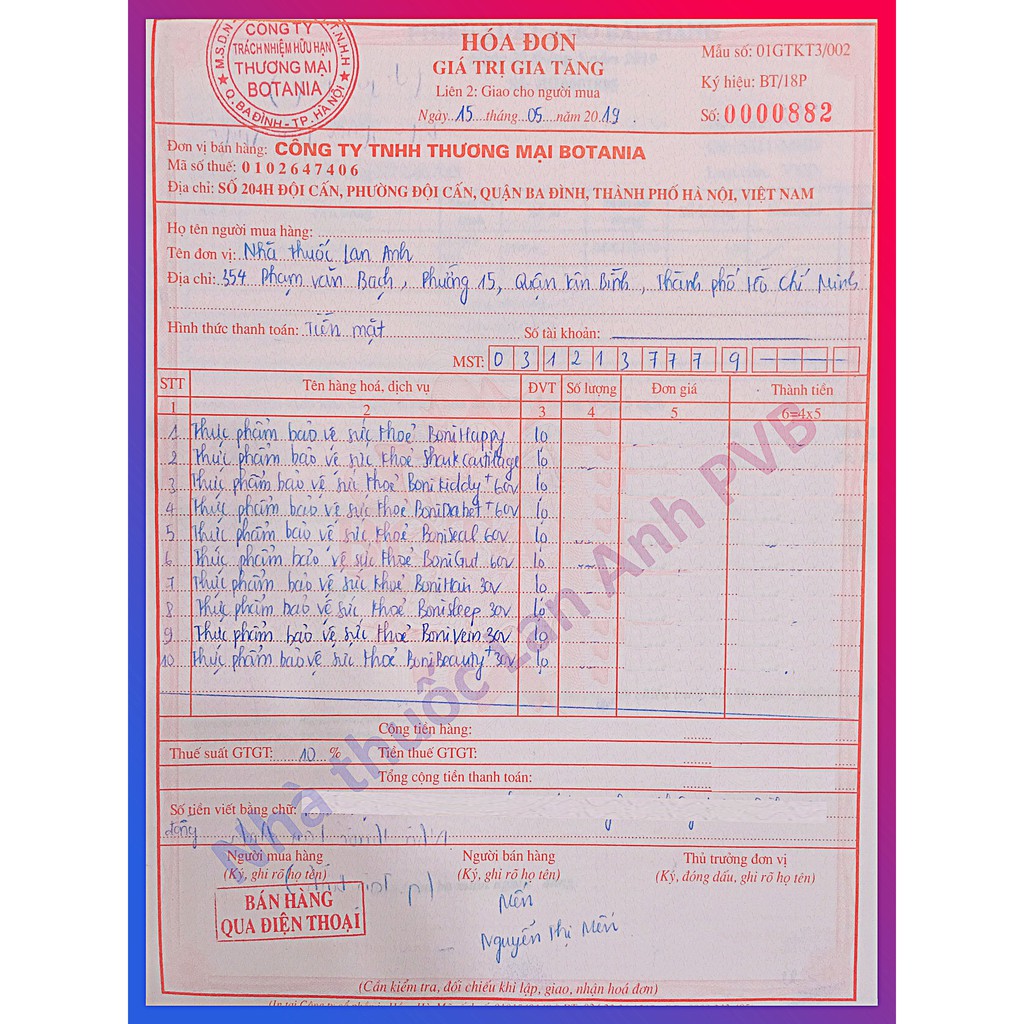 M.S.D.N
T.N.H.H
CÔNG TY
TRÁCH NHIỆM HỮU HẠN
THƯƠNG MẠI
BOTANIA
Q.BA ĐÌNH - TP. HÀ NỘI
HÓA ĐƠN
GIÁ TRỊ GIA TĂNG
Liên 2: Giao cho người mua
Ngày 15 tháng 05 năm 2019.
Mẫu số: 01GTKT3/002
Ký hiệu: BT/18P
Số: 0000882
Đơn vị bán hàng: CÔNG TY TNHH THƯƠNG MẠI BOTANIA
Mã số thuế: 0102647406
Địa chỉ: SỐ 204H ĐỘI CẤN, PHƯỜNG ĐỘI CẤN, QUẬN BA ĐÌNH, THÀNH PHỐ HÀ NỘI, VIỆT NAM
Họ tên người mua hàng:
Tên đơn vị: Nhà thuốc Lan Anh
Địa chỉ: 354 Phạm Văn Bạch, Phường 15, Quận Tân Bình, Thành phố Hồ Chí Minh
Hình thức thanh toán: Tiền mặt Số tài khoản:
MST: 0312137779
STT Tên hàng hoá, dịch vụ ĐVT Số lượng Đơn giá Thành tiền
1 2 3 4 5 6=4x5
1 Thực phẩm bảo vệ sức khoẻ BoniHappy lọ
2 Thực phẩm bảo vệ sức khoẻ Shark cartilage lọ
3 Thực phẩm bảo vệ sức khoẻ BoniKiddy+ 60v lọ
4 Thực phẩm bảo vệ sức khoẻ BoniDiabet+ 60v lọ
5 Thực phẩm bảo vệ sức khoẻ BoniSeal 60v lọ
6 Thực phẩm bảo vệ sức khoẻ BoniGut 60v lọ
7 Thực phẩm bảo vệ sức khoẻ BoniHair 30v lọ
8 Thực phẩm bảo vệ sức khoẻ BoniSleep 30v lọ
9 Thực phẩm bảo vệ sức khoẻ BoniVein 30v lọ
10 Thực phẩm bảo vệ sức khoẻ BoniBeauty+ 30v lọ
Cộng tiền hàng:
Thuế suất GTGT: 10 % Tiền thuế GTGT:
Tổng cộng tiền thanh toán:
Số tiền viết bằng chữ:
đồng
Người mua hàng Người bán hàng Thủ trưởng đơn vị
(Ký, ghi rõ họ tên) (Ký, ghi rõ họ tên) (Ký, đóng dấu, ghi rõ họ tên)
BÁN HÀNG
QUA ĐIỆN THOẠI
Mến
Nguyễn Thị Mến
(Cần kiểm tra, đối chiếu khi lập, giao, nhận hoá đơn)
Nhà thuốc Lan Anh PVB